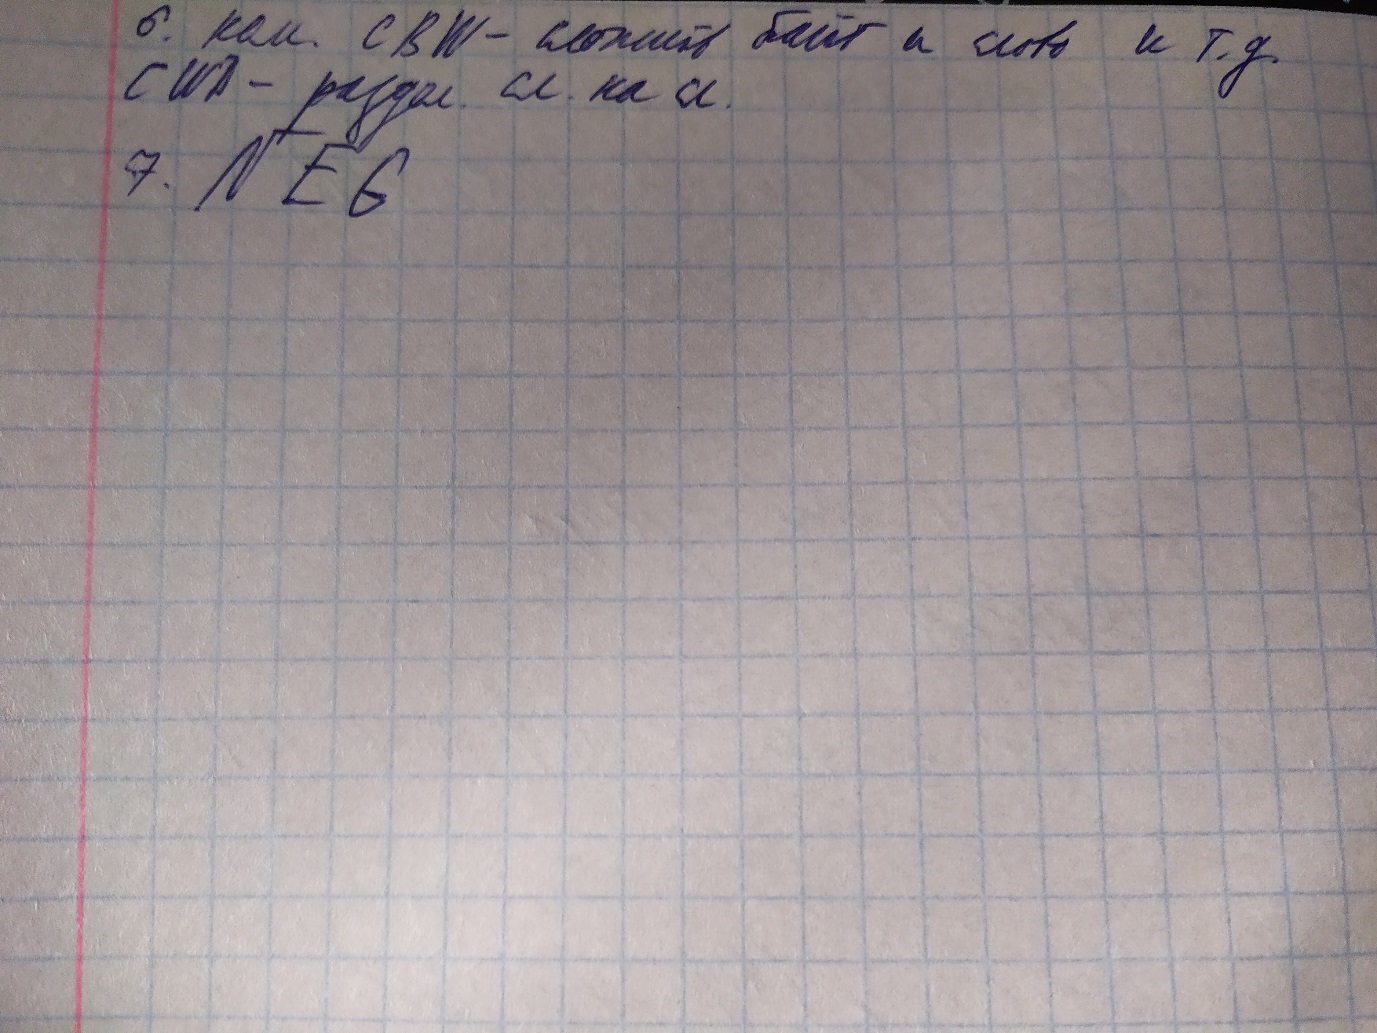 6. ком. CBW - сложить байт и слово и т.д.
CWD - раздел. сл. на сл.
7. NEG